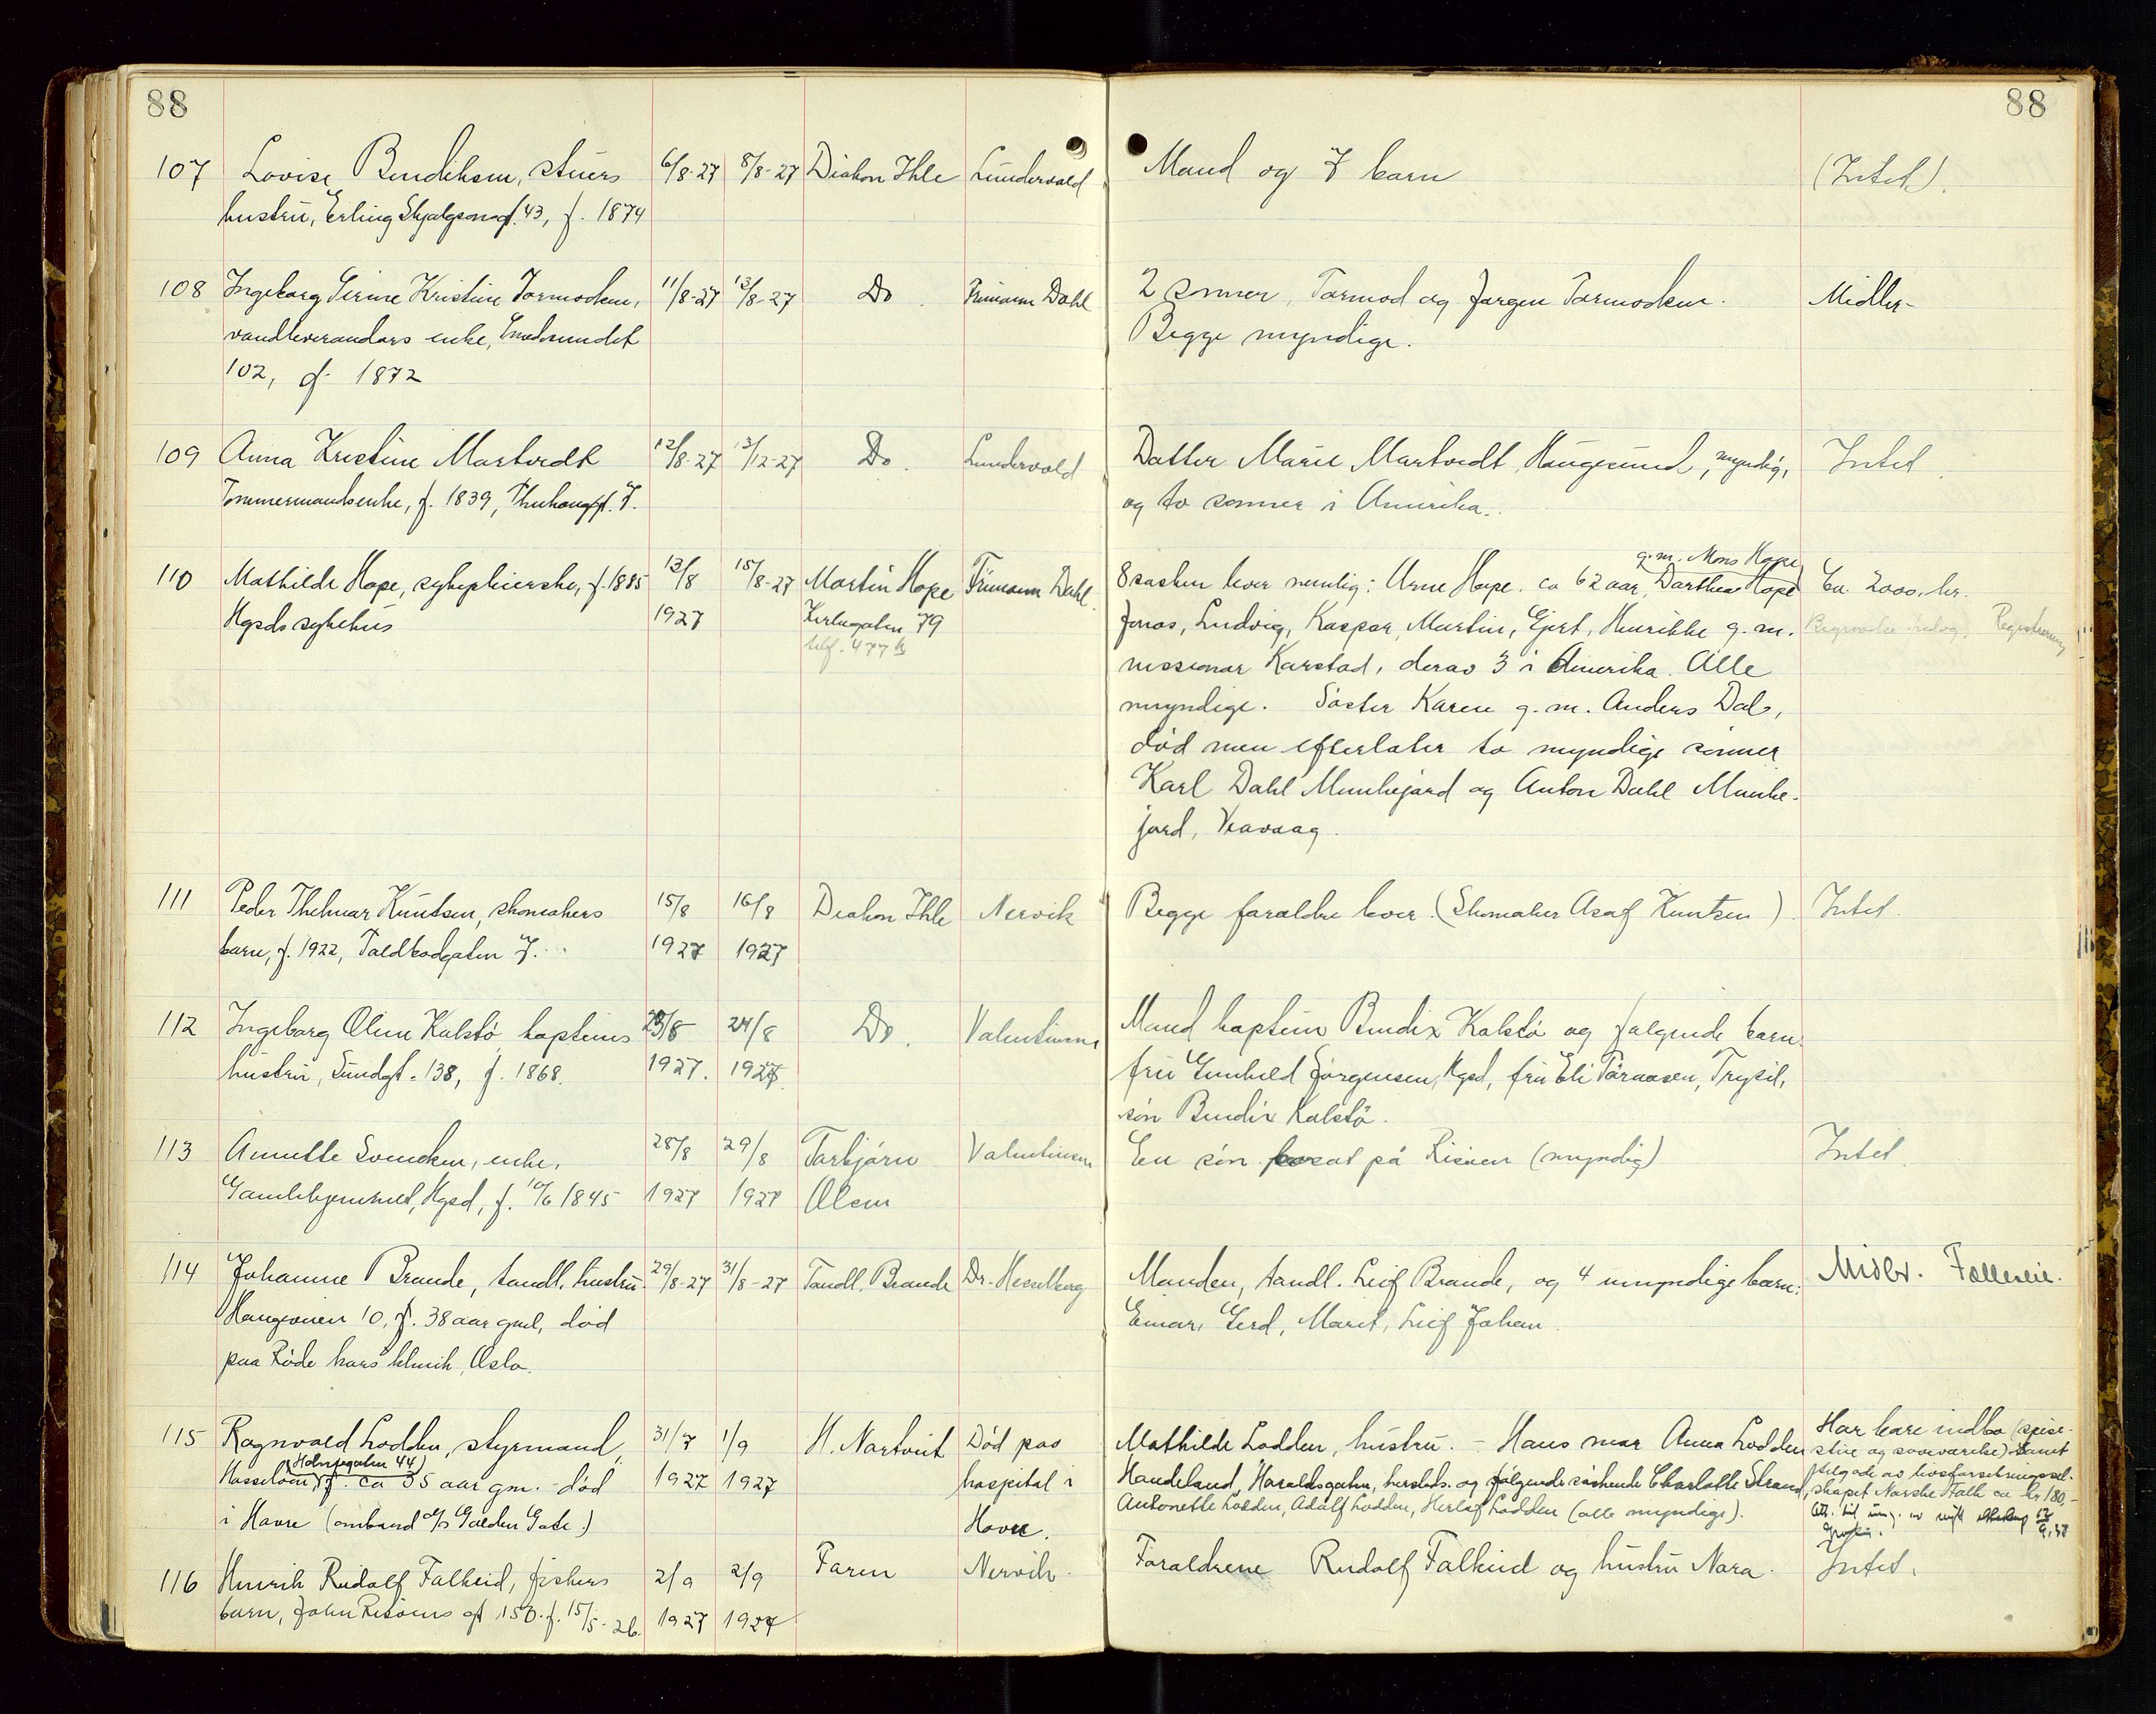 88
88
107 Lovise Bendiksen, stuers 6/8-27 8/8-27 Diakon Ihle Lundervold Mand og 7 barn (Intet).
hustru, Erling Skjalgsonsgt. 43, f. 1874
108 Ingeborg Serine Kristine Tormodsen, 11/8-27 13/8-27 Do Frimann Dahl 2 sønner, Tormod og Jørgen Tormodsen. Midler
vandleverandørs enke, Smedasundet Begge myndige.
102, f. 1872
109 Anna Kristine Martvedt 12/8-27 13/12-27 Do. Lundervold Datter Marie Martvedt, Haugesund, myndig, Intet.
Tømmermandsenke, f. 1839, 7. og to sønner i Amerika.
g. m. Mons Hope
110 Mathilde Hope, sykepleierske, f. 1885 13/8 15/8-27 Martin Hope Frimann Dahl. 8 søsken lever nemlig: Arne Hope. ca 62 aar, Darthea Hope Ca. 2000. kr.
Hgsds sykehus 1927 Kirkegaten 79 Jonas, Ludvig, Kaspar, Martin, Gjert, Henrikke g. m. Registrering
tlf. 477 missionær Karstad, derav 3 i Amerika. Alle
myndige. Søster Karen g. m. Anders Dal,
død men efterlater to myndige sønner
Karl Dahl Munkejord og Anton Dahl Munke-
jord, Veavaag.
111 Peder Thelmar Knutsen, skomakers 15/8 16/8 Diakon Ihle Nervik Begge forældre lever. (Skomaker Asaf Knutsen). Intet.
barn, f. 1922, Toldbodgaten 7. 1927 1927
112 Ingeborg Oline Kalstø, kapteins 23/8 24/8 Do. Valentinsen Mand kaptein Bendix Kalstø og følgende barn:
hustru, Sundgt. 138, f. 1868. 1927. 1927. fru Gunhild Jørgensen, Hgsd, fru Eli, Trysil,
søn Bendix Kalstø.
113 Annette Svendsen, enke, 28/8 29/8 Torbjørn Valentinsen En søn bosat på Risøen (myndig) Intet.
Gamlehjemmet, Hgsd, f. 10/6 1845 1927 1927 Olsen
114 Johanne Brande, tandl. hustru. 29/8-27 31/8-27 Tandl. Brande Dr. Hesselberg Manden, tandl. Leif Brande, og 4 umyndige barn: Midler. Fælleseie.
Haugeveien 10, f. 38 aar gml, død Einar, Gerd, Marit, Leif Johan.
paa Røde kors klinik, Oslo.
115 Ragnvald Lodden, styrmand, 31/7 1/9 H. Nartveit Død paa Mathilde Lodden, hustru. - Hans mor Anna Lodden Har bare indbo (spise-
(Holmegaten 44) stue og soveværelse) samt
Hasseløen, f. ca 35 aar gm. død 1927 1927 hospital i Handeland, Haraldsgaten, hersteds. og følgende søskende Charlotte Strand,
i Havre (ombord m/s Golden Gate.) Havre. Antonette Lodden, Adolf Lodden, Herlof Lodden (alle myndige). skapet Norske Folk ca kr 180,-
116 Henrik Rudolf Falkeid, fiskers 2/9 2/9 Faren Nervik. Forældrene Rudolf Falkeid og hustru Nora. Intet.
barn, John Risøens gt 150. f. 15/5-26. 1927 1927